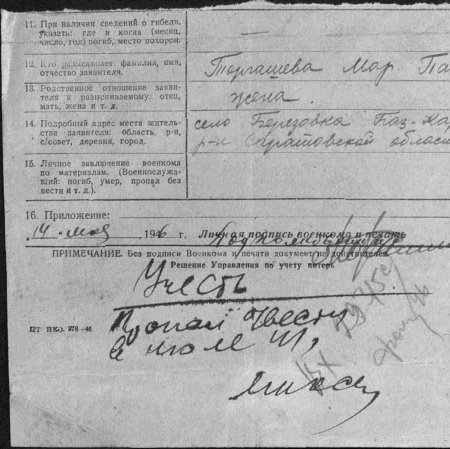 11. При наличии сведений о гибели,
указать: где и когда (месяц,
число, год) погиб, место похорон.
12. Кто разыскивает: фамилия, имя,
отчество заявителя.
Торгашева Мар Па
13. Родственное отношение заяви-
теля к разыскиваемому: отец,
мать, жена и т. д.
жена.
14. Подробный адрес места житель-
ства заявителя: область, р-н,
с/совет, деревня, город.
село Березовка Баз-Кар
р-н Саратовской област
15. Личное заключение военкома
по материалам. (Военнослужа-
щий: погиб, умер, пропал без
вести и т. д.).
16. Приложение:
14 мая 1946 г. Личная подпись военкома и печать
ПРИМЕЧАНИЕ. Без подписи Военкома и печати документ не действителен.
Решение Управления по учету потерь
Учесть
Пропал б/вести
в июле 41,
ПТ НКО. 978—46